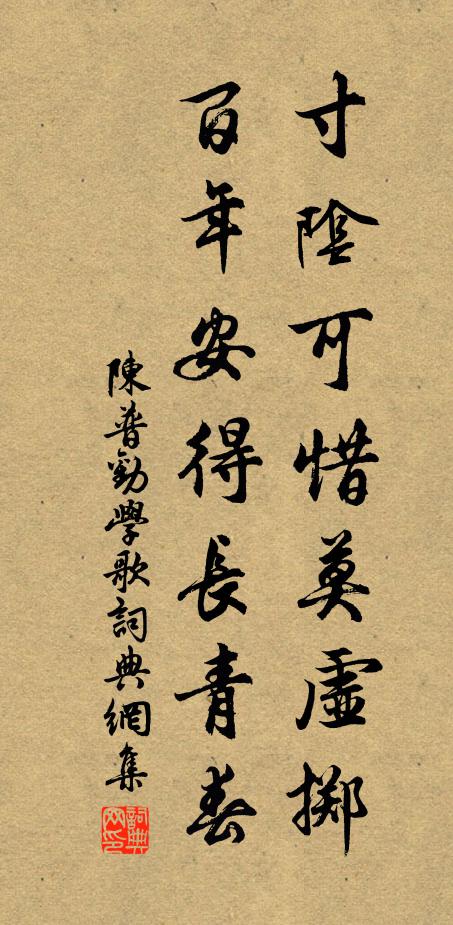 寸陰可惜莫虛擲
百年安得長青春
陳普勸學歌詞典網集
詞典網印